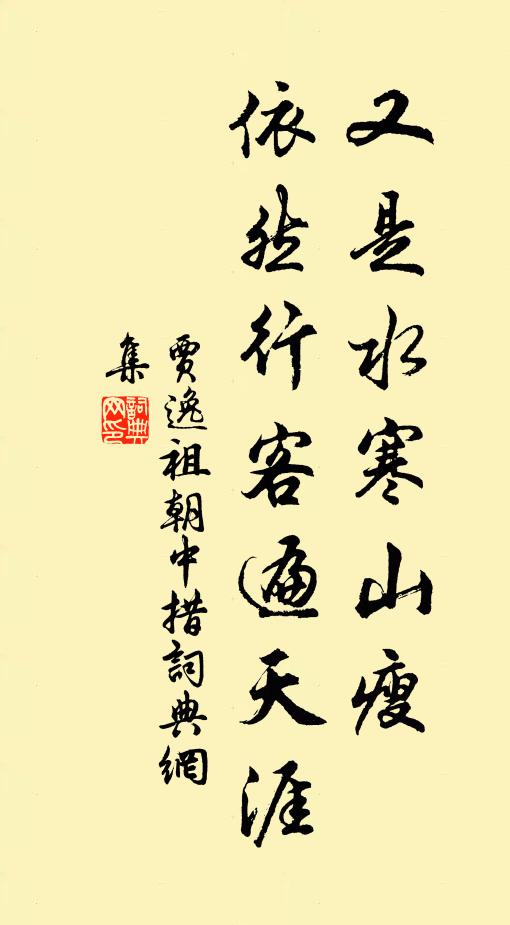 又是水寒山瘦
依然行客遍天涯
賈逸祖朝中措詞典網
集
詞典網印